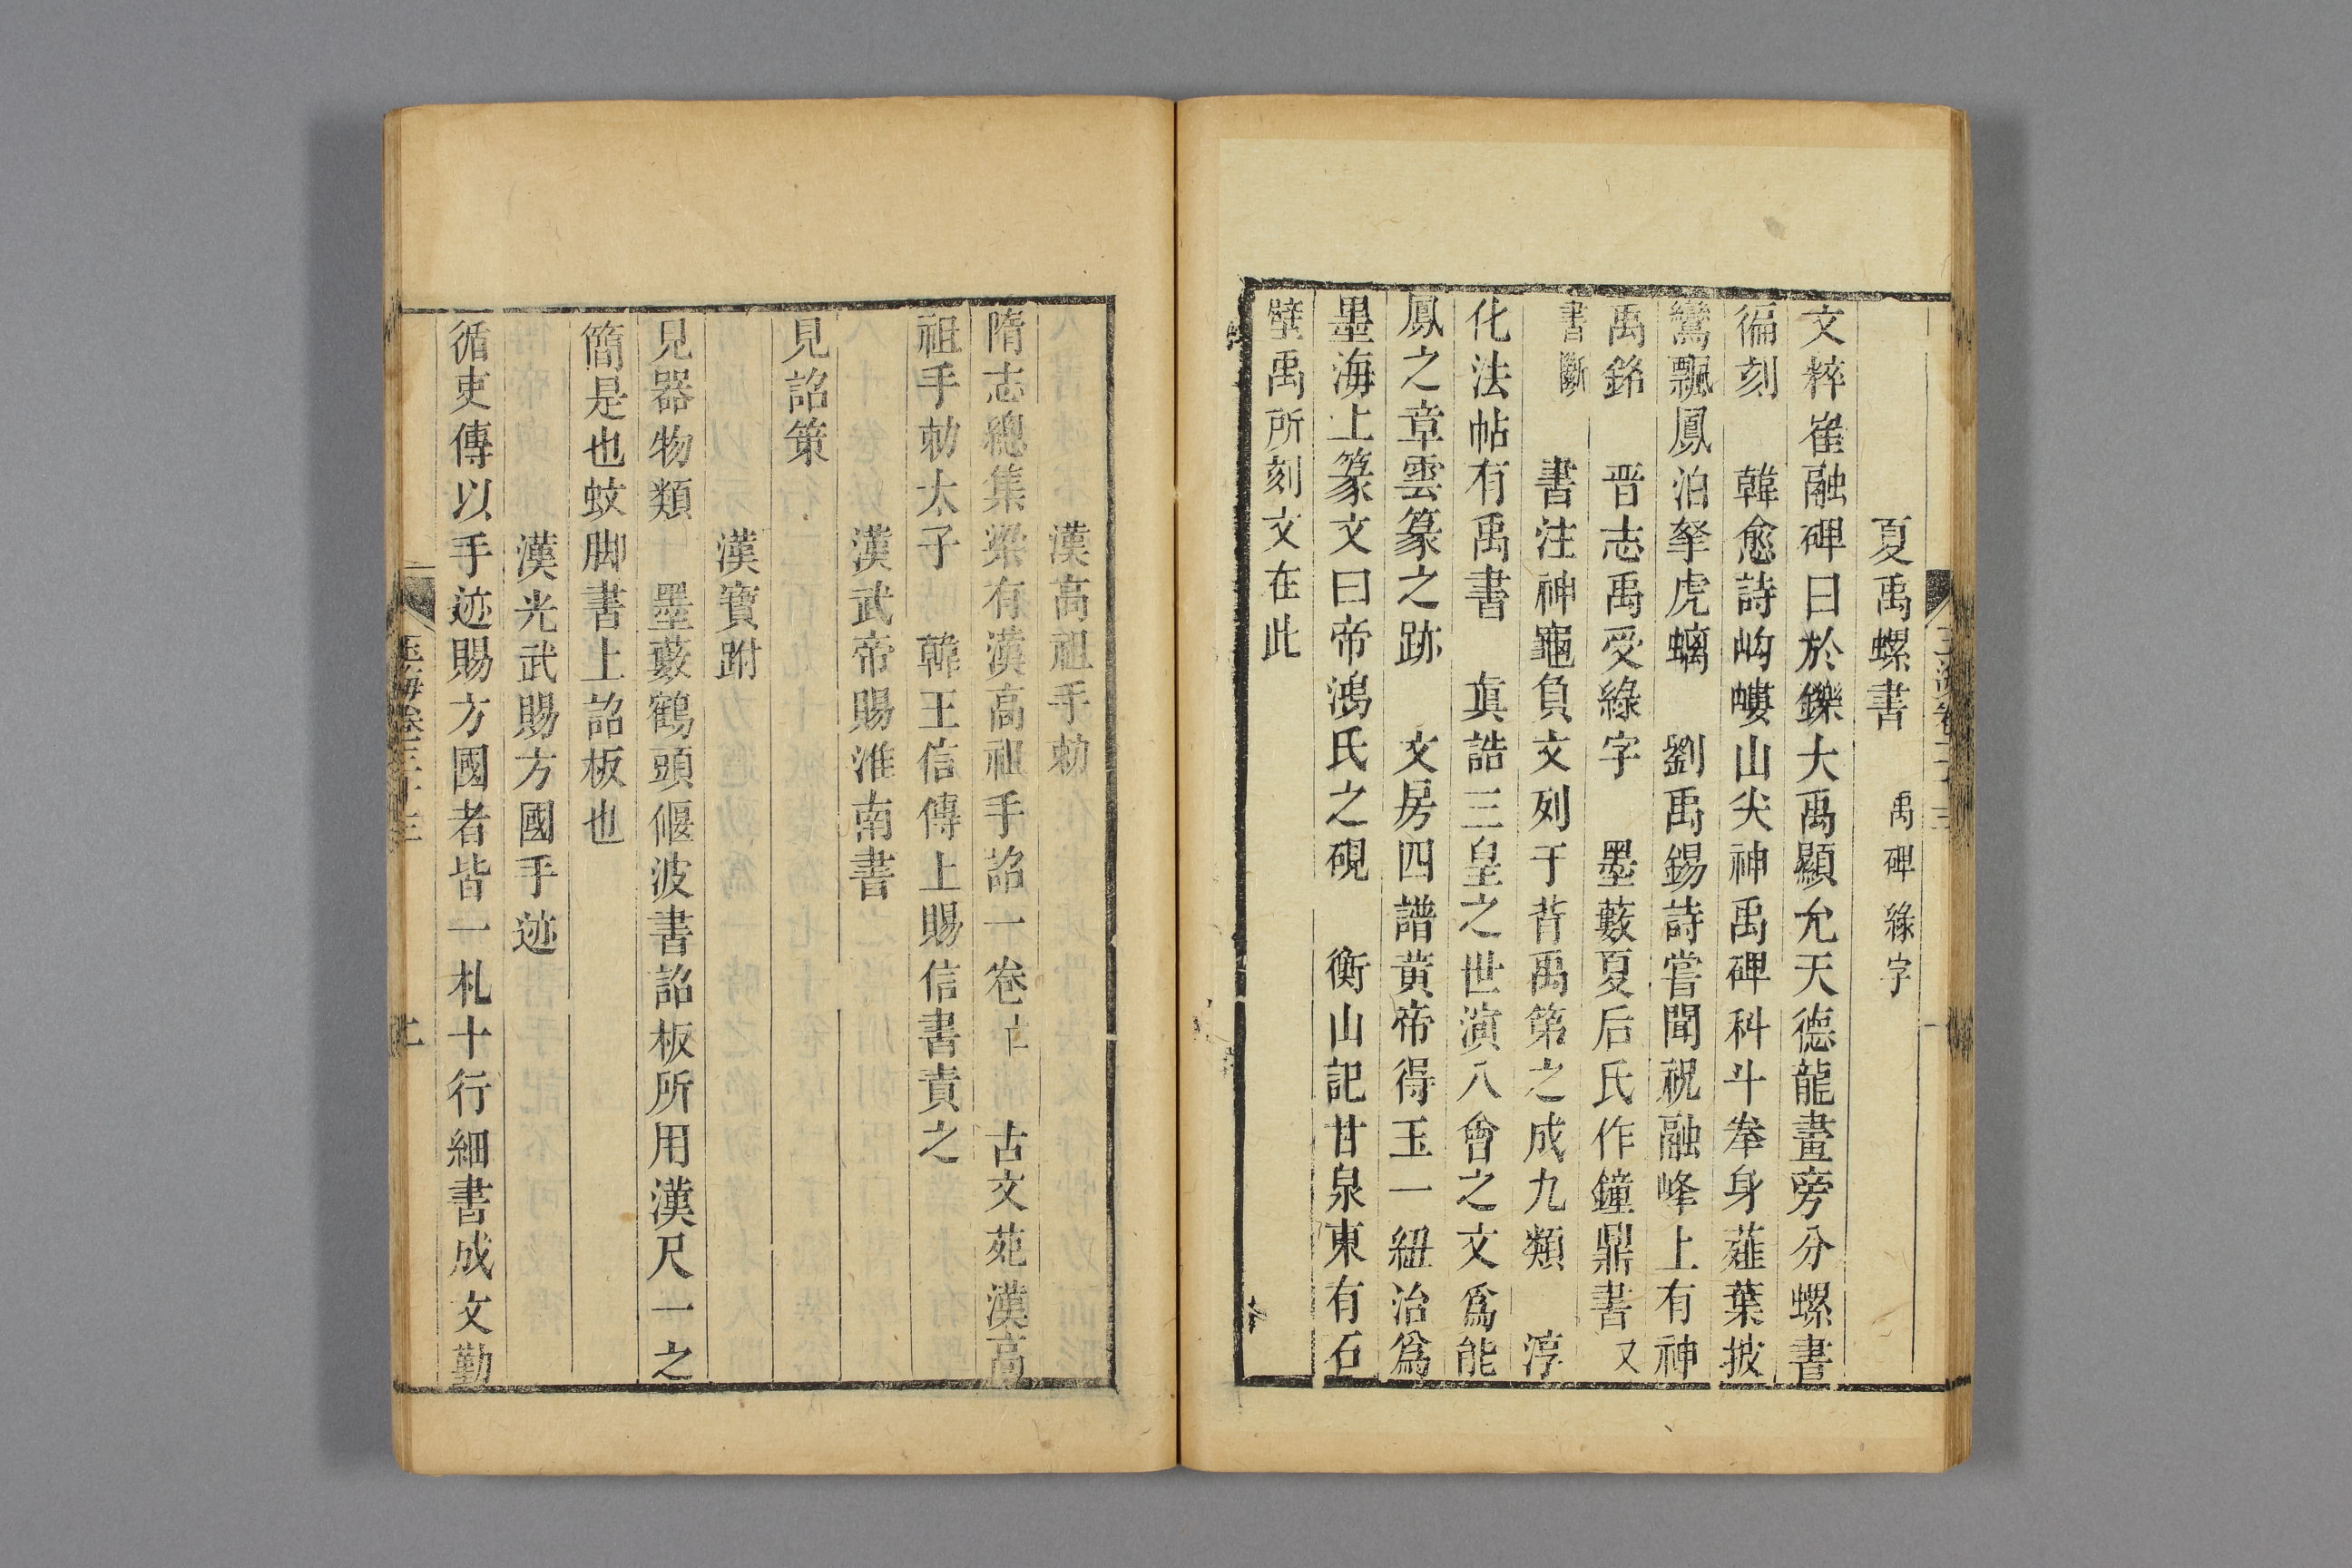 夏禹螺書 禹碑綠字
文粹崔融碑曰於鑠大禹顯允天德龍畫旁分螺書
徧刻 韓愈詩岣嶁山尖神禹碑科斗拳身薤葉披
鸞飄鳳泊拏虎螭 劉禹錫詩嘗聞祝融峰上有神
禹銘 晋志禹受綠字 墨藪夏后氏作鐘鼎書 又
書斷 書注神龜負文列于背禹第之成九類 淳
化法帖有禹書 真誥三皇之世演八會之文爲能
鳳之章雲篆之跡 文房四譜黃帝得玉一紐治爲
墨海上篆文曰帝鴻氏之硯 衡山記甘泉東有石
壁禹所刻文在此
漢高祖手勑
隋志總集梁有漢高祖手詔一卷亡 古文苑漢高
祖手勑太子 韓王信傳上賜信書責之
漢武帝賜淮南書
見詔策
漢寶跗
見器物類 墨藪鶴頭偃波書詔板所用漢尺一之
簡是也蚊脚書上詔板也
漢光武賜方國手迹
循吏傳以手迹賜方國者皆一札十行細書成文勤
玉海卷三十三